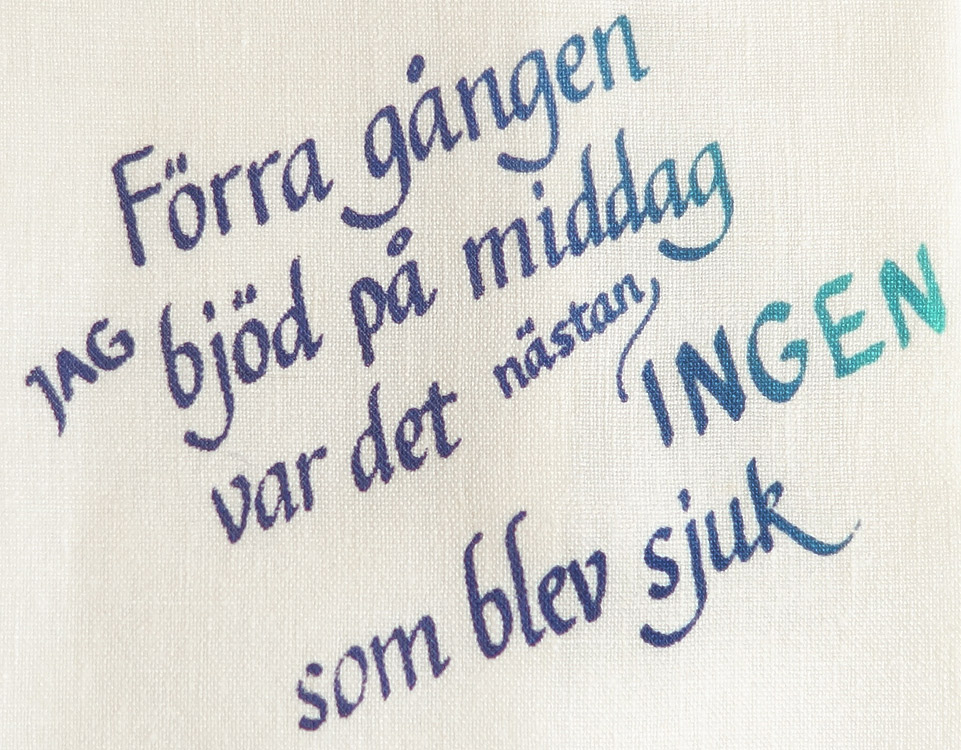 Förra gången
JAG bjöd på middag
var det nästan INGEN
som blev sjuk